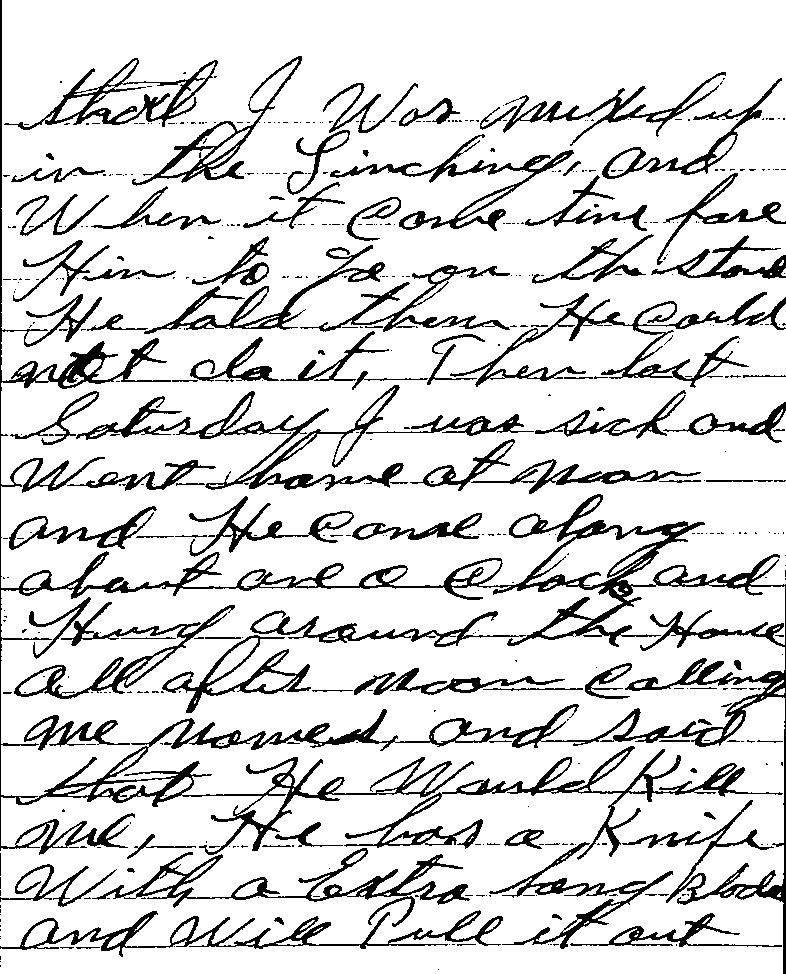 that I Was mixed up
in the Linching, and
When it Come time fore
Him to Go on the stand
He told them He Could
not do it, Then last
Saturday I was sick and
Went home at noon
and He Come along
about one o Clock and
Hung around the House
all after noon Calling
me names, and said
that He Would Kill
me, He has a Knife
With a Extra long Blade
and Will Pull it out